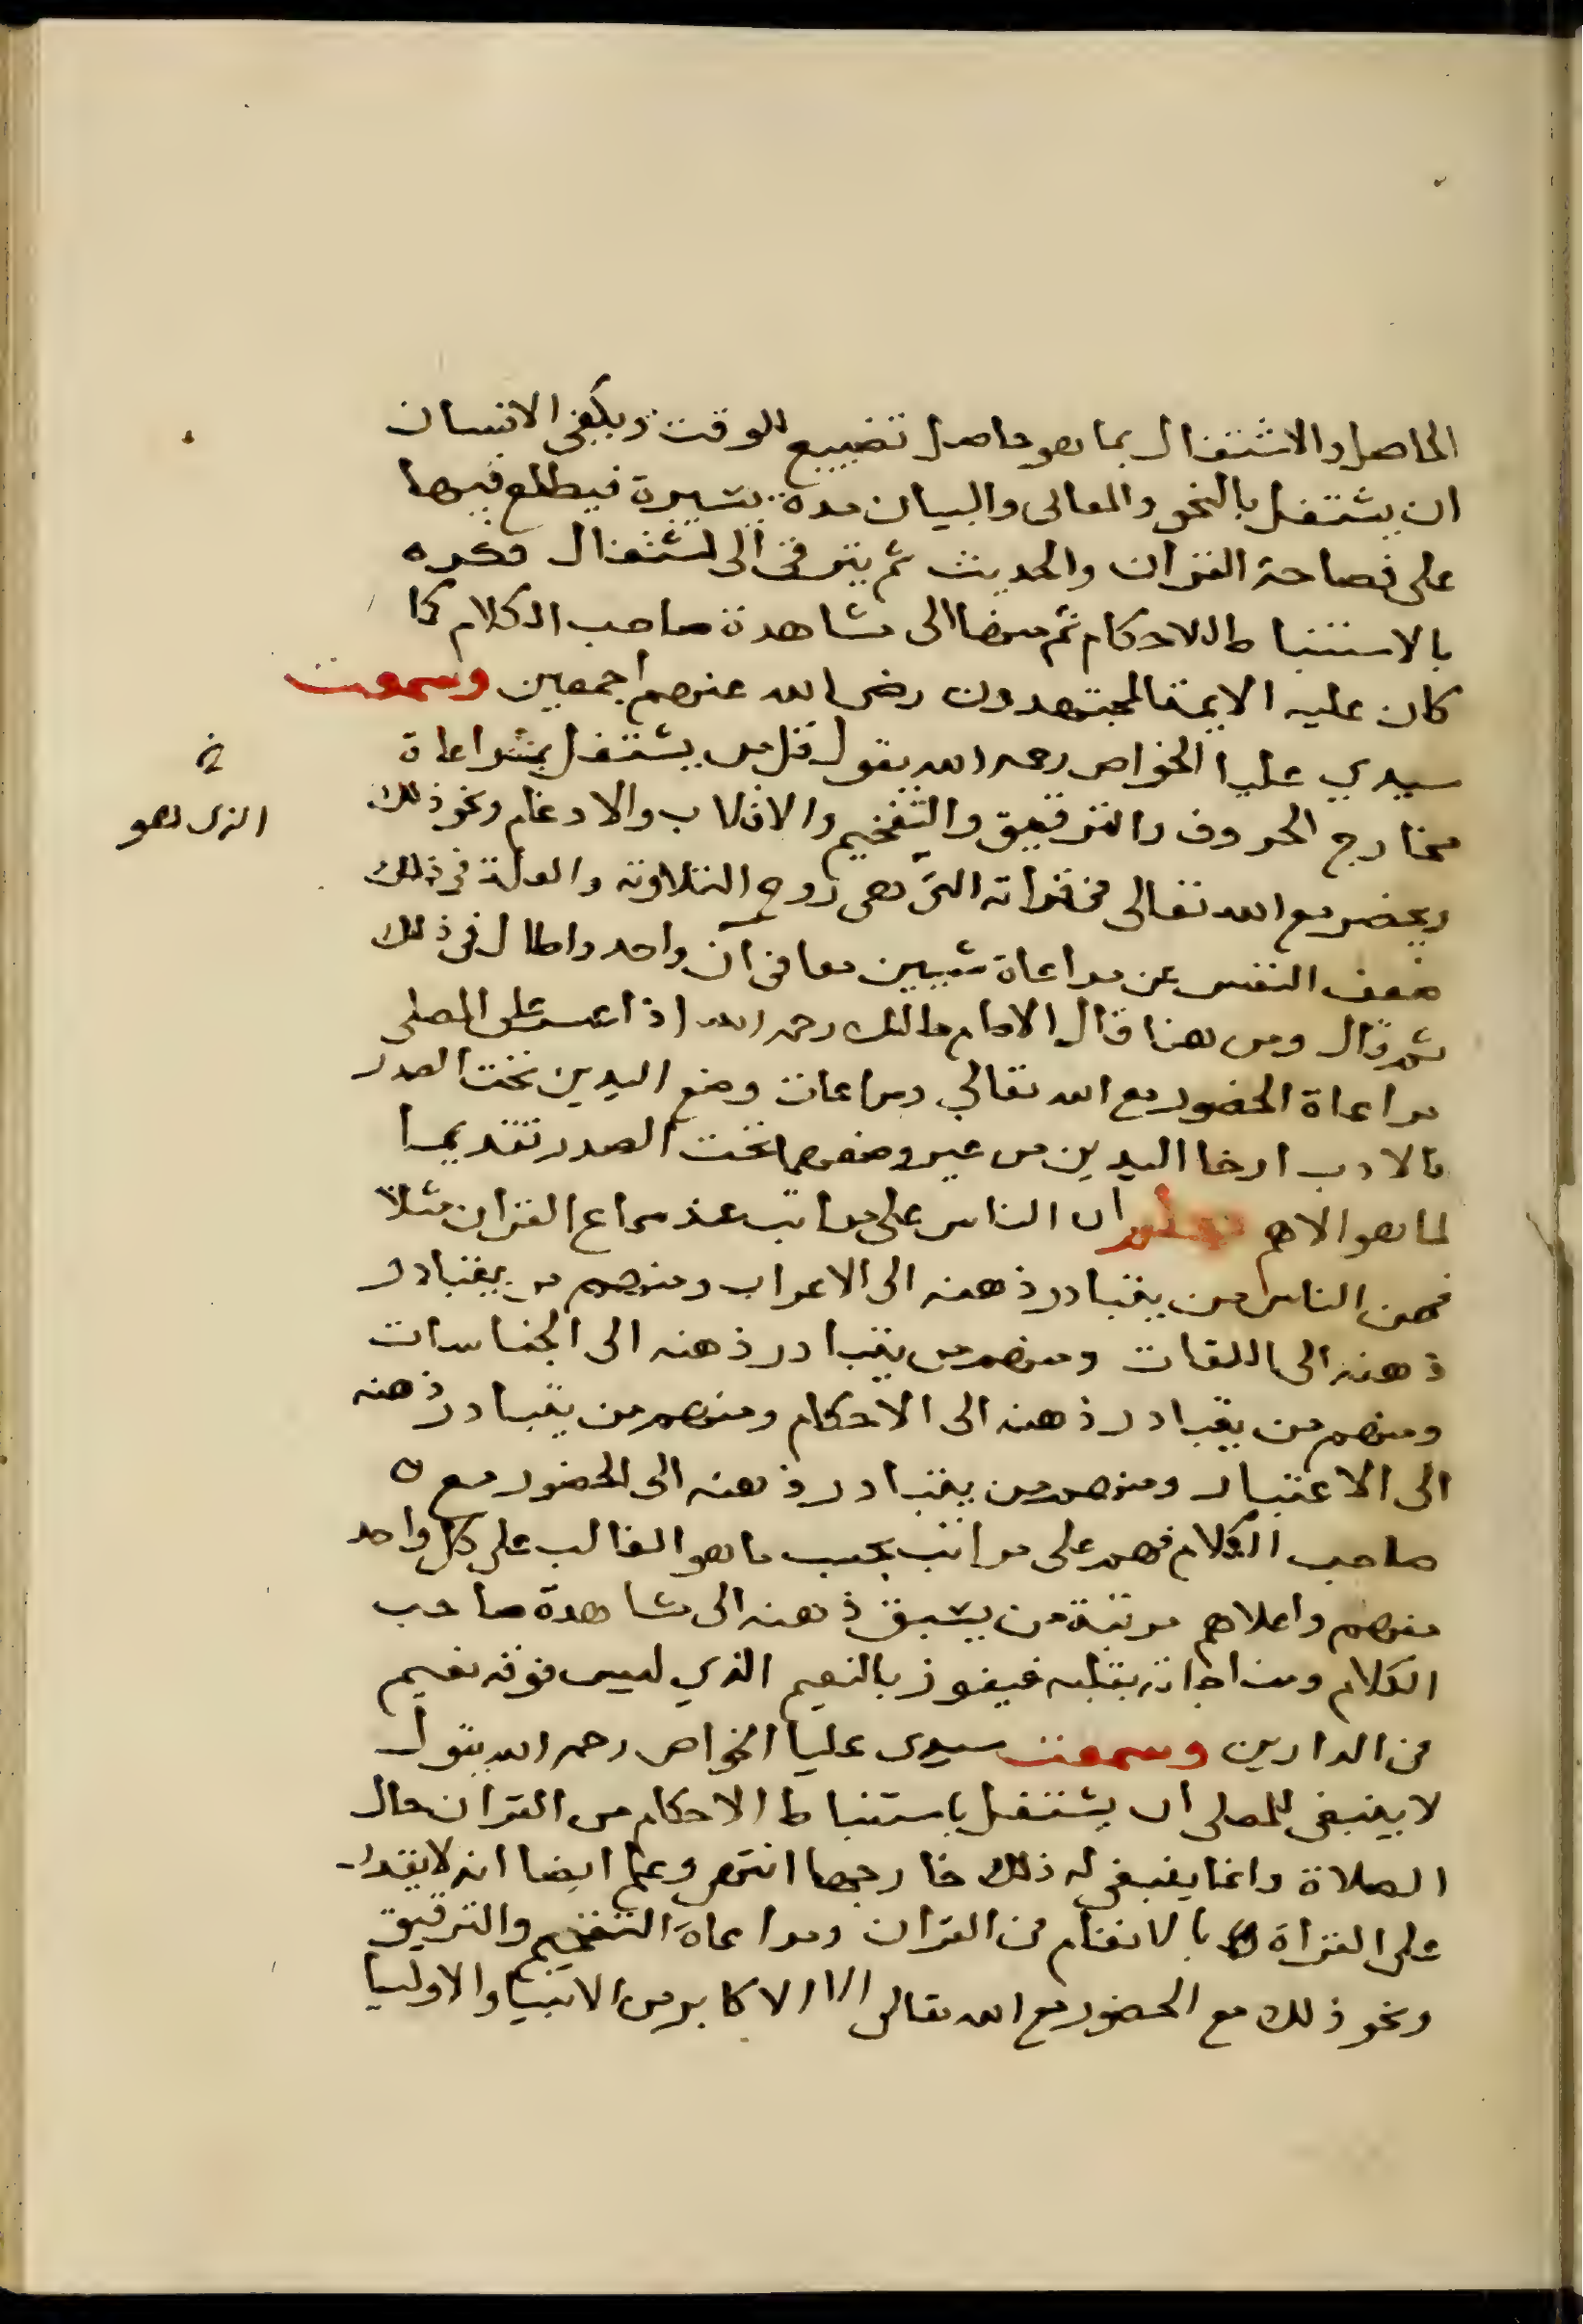 الحاصل والاشتغال بما هو حاصل تضييع للوقت ويكفي الانسان
ان يشتغل بالنحو والمعاني والبيان مدة يسيرة فيطلع فيها
على فصاحة القران والحديث ثم يترقى الى اشتغال فكره
بالاستنباط للاحكام ثم منها الى مشاهدة صاحب الكلام كما
كان عليه الايمة المجتهدون رضى الله عنهم اجمعين وسمعت
سيدي عليا الخواص رحمه الله يقول قل من يشتغل بمراعاة
مخارج الحروف والترقيق والتفخيم والاقلاب والادغام ونحو ذلك
ويحضر مع الله تعالى في قراته التى هى روح التلاوة والعلة في ذلك
خ
الذى هو
ضعف النفس عن مراعاة شيين معا في آن واحد واطال في ذلك
ثم قال ومن هنا قال الامام مالك رحمه الله اذا عسر على المصلى
مراعاة الحضور مع الله تعالي ومراعات وضع اليدين تحت الصدر
فالادب ارخا اليدين من غير وضعهما تحت الصدر تقديما
لما هو الاهم ان الناس على مراتب عند سماع القران مثلا
فمن الناس من يتبادر ذهنه الى الاعراب ومنهم من يتبادر
ذهنه الى اللغات ومنهم من يتبادر ذهنه الى الجناسات
ومنهم من يتبادر ذهنه الى الاحكام ومنهم من يتبادر ذهنه
الى الاعتبار ومنهم من يتبادر ذهنه الى الحضور مع
صاحب الكلام فهم على مراتب بحسب ما هو الغالب على كل واحد
منهم واعلاهم مرتبة من يسبق ذهنه الى مشاهدة صاحب
الكلام ومناجاته بقلبه فيفوز بالنعيم الذي ليس فوقه نعيم
في الدارين وسمعت سيدى عليا الخواص رحمه الله يقول
لا ينبغى للمصلى ان يشتغل باستنباط الاحكام من القران حال
الصلاة وانما ينبغى له ذلك خارجها انتهى وعلم ايضا انه لا يقدر
على القراة بالانغام في القران ومراعاة التفخيم والترقيق
ونحو ذلك مع الحضور مع الله تعالى الا الاكابر من الانبيا والاوليا